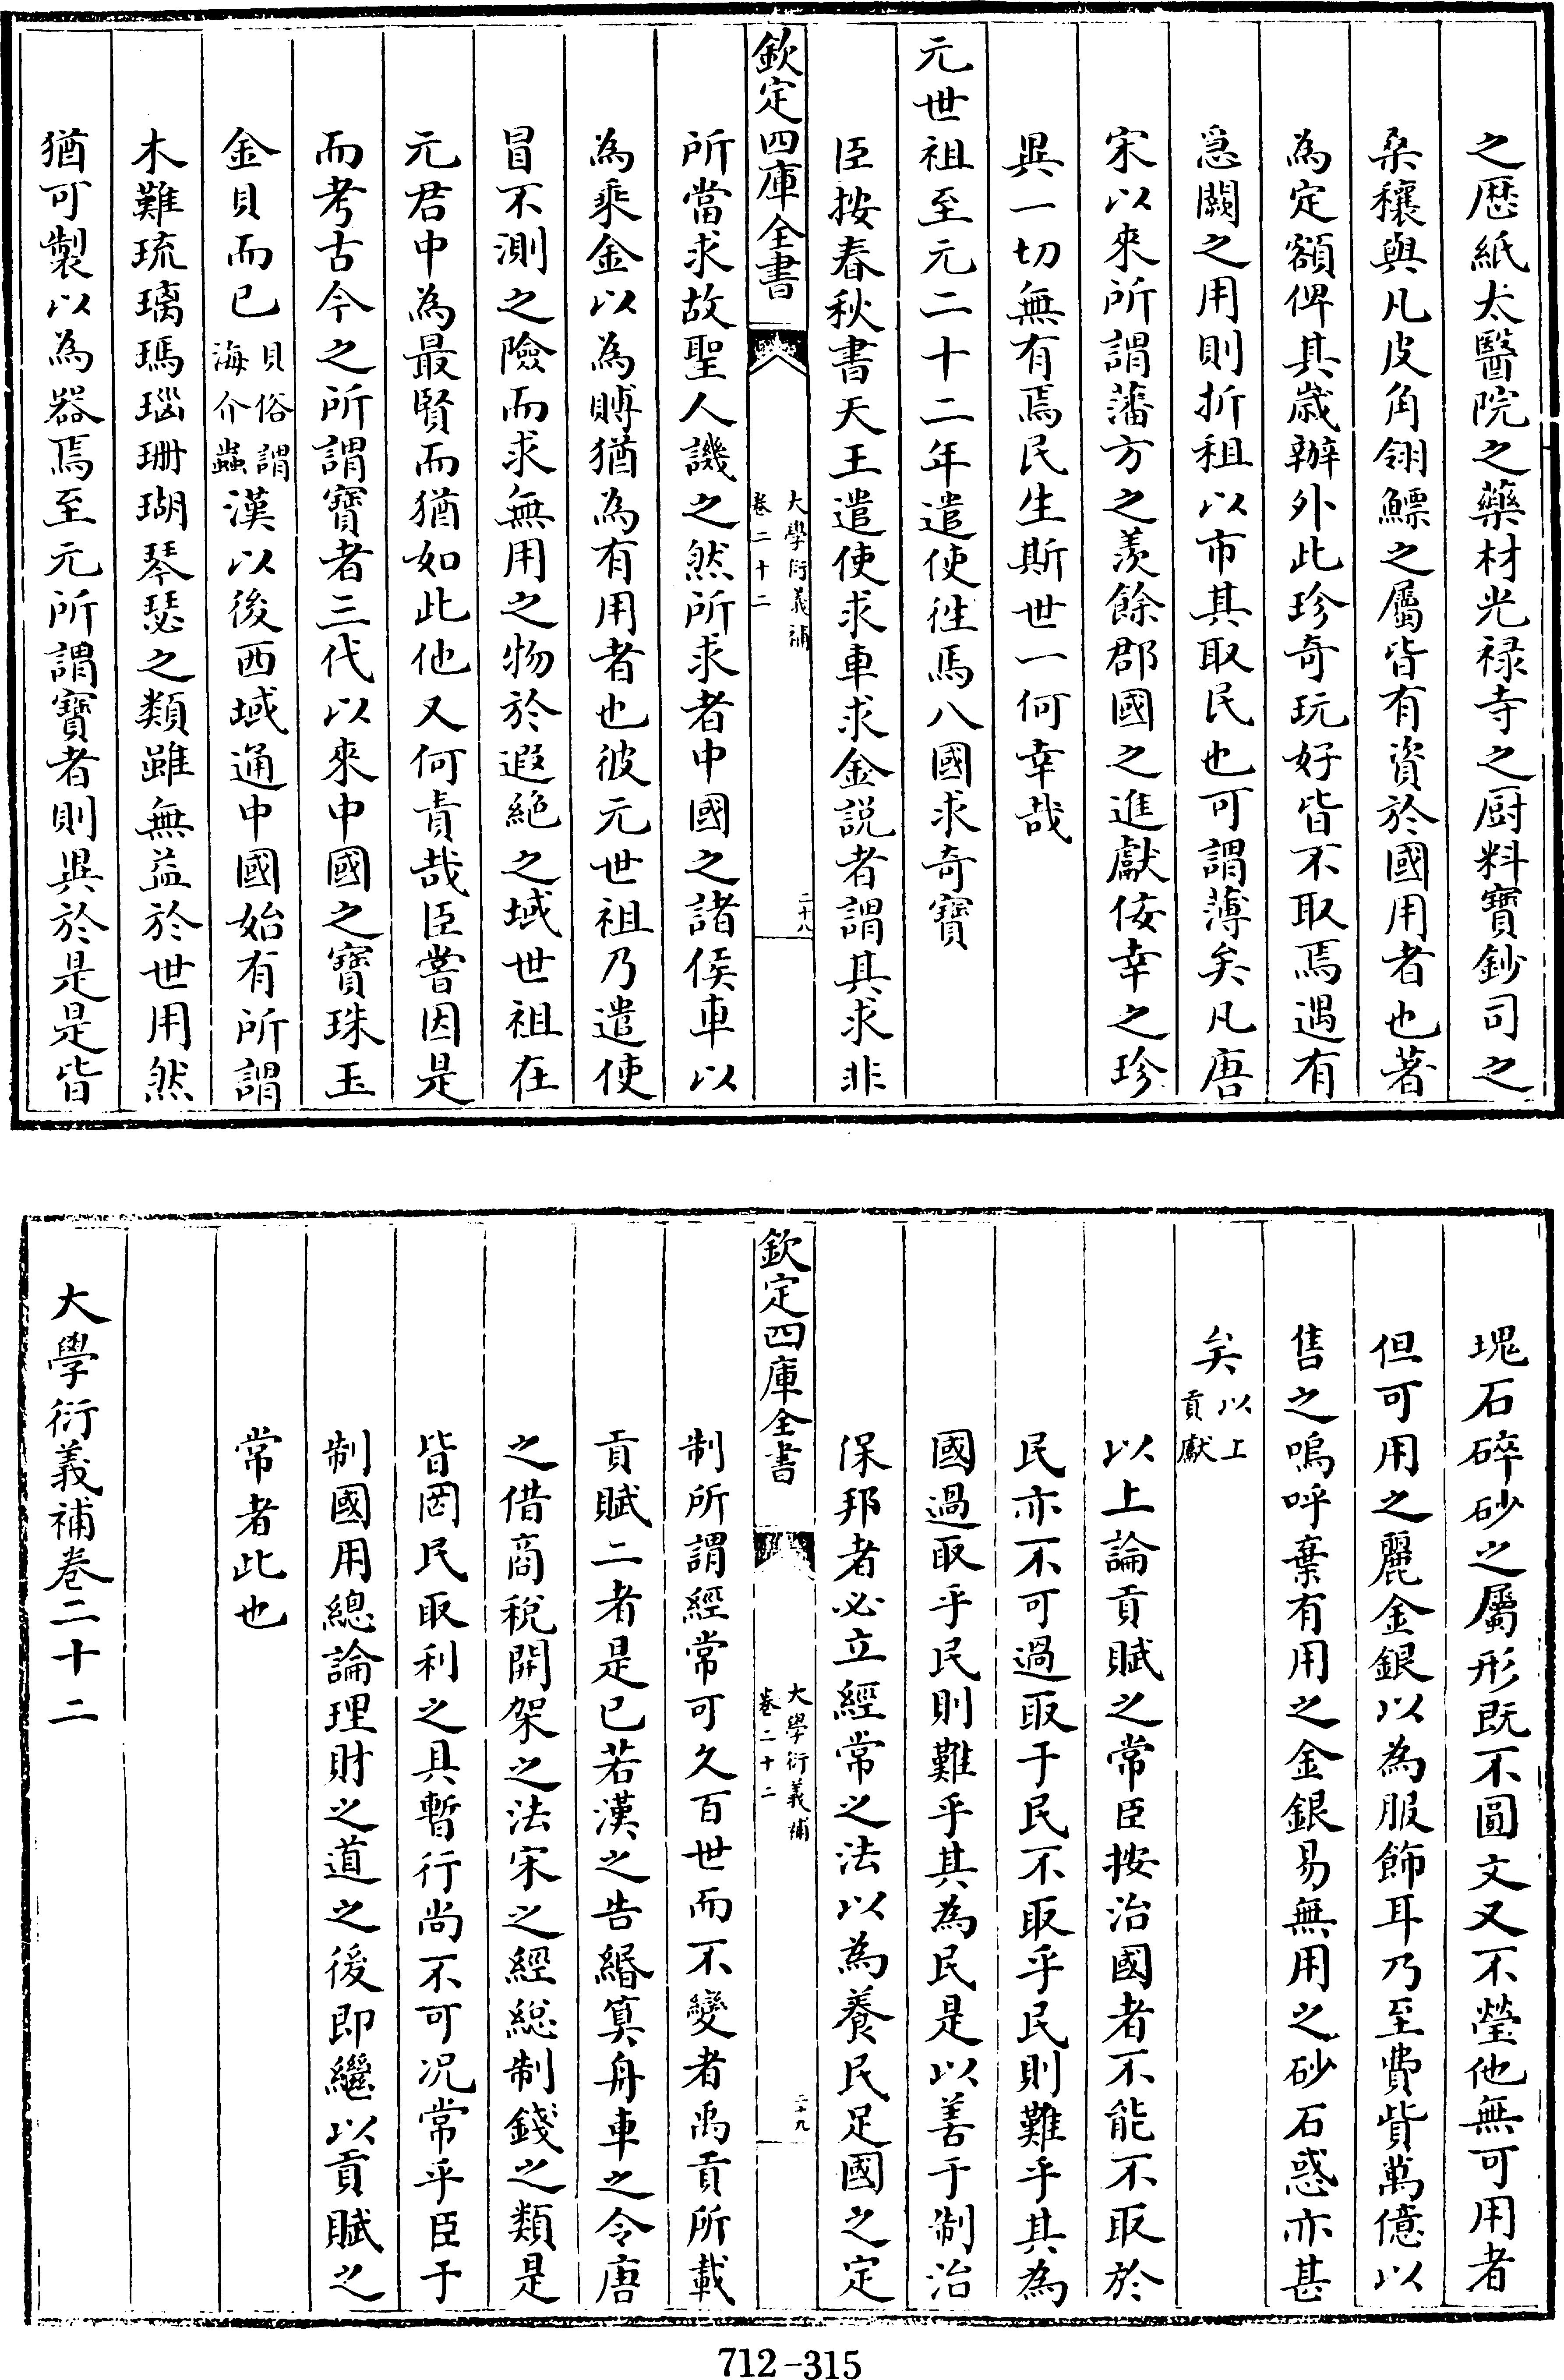 之歴紙太醫院之藥材光禄寺之厨料寶鈔司之
桑穰與凡皮角翎鰾之屬皆有資於國用者也著
為定額俾其歳辦外此珍奇玩好皆不取焉遇有
急闕之用則折租以市其取民也可謂薄矣凡唐
宋以來所謂藩方之羨餘郡國之進獻倿幸之珍
異一切無有焉民生斯世一何幸哉
元世祖至元二十二年遣使徃馬八國求奇寶
臣按春秋書天王遣使求車求金説者謂其求非
欽定四庫全書
大學衍義補
卷二十二
二十八
所當求故聖人譏之然所求者中國之諸侯車以
為乘金以為賻猶為有用者也彼元世祖乃遣使
冒不測之險而求無用之物於遐絶之域世祖在
元君中為最賢而猶如此他又何責哉臣嘗因是
而考古今之所謂寶者三代以來中國之寶珠玉
金貝而已貝俗謂海介蟲漢以後西域通中國始有所謂
木難琉璃瑪瑙珊瑚琴瑟之類雖無益於世用然
猶可製以為器焉至元所謂寶者則異於是是皆
塊石碎砂之屬形既不圓文又不瑩他無可用者
但可用之麗金銀以為服飾耳乃至費貲萬億以
售之嗚呼棄有用之金銀易無用之砂石惑亦甚
矣以上貢獻
以上論貢賦之常臣按治國者不能不取於
民亦不可過取于民不取乎民則難乎其為
國過取乎民則難乎其為民是以善于制治
保邦者必立經常之法以為養民足國之定
欽定四庫全書
大學衍義補
卷二十二
二十九
制所謂經常可久百世而不變者禹貢所載
貢賦二者是已若漢之告緡算舟車之令唐
之借商稅間架之法宋之經總制錢之類是
皆罔民取利之具暫行尚不可况常乎臣于
制國用總論理財之道之後即繼以貢賦之
常者此也
大學衍義補卷二十二
712-315